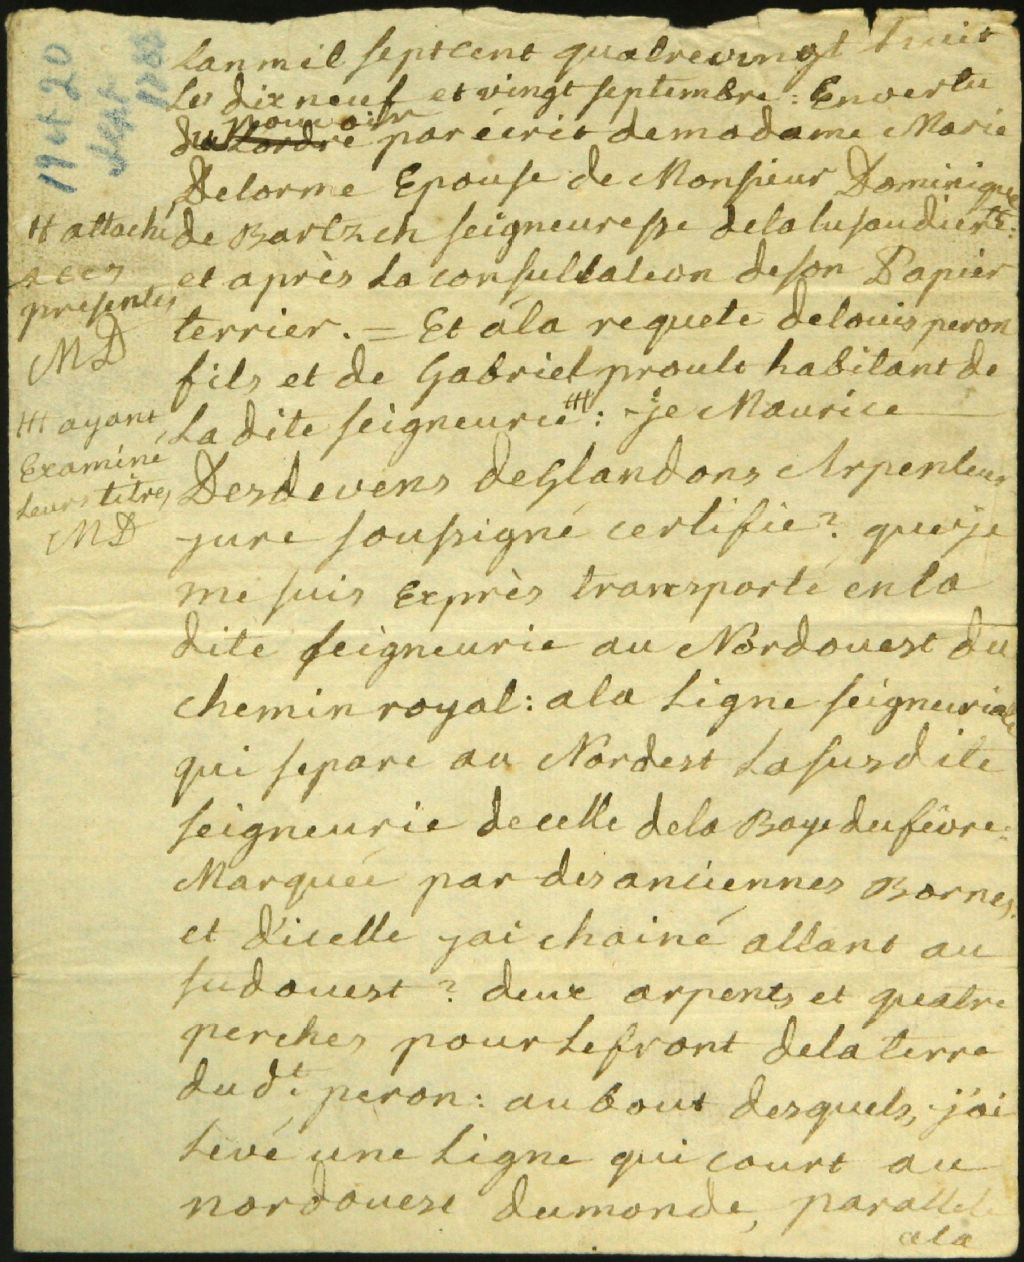 19 et 20
Sept
1788
Lan mil septcent quatrevingt huit
les dix neuf et vingt septembre: En vertu
pouvoir
du Lordre par écrit de madame Marie
Delorme Epouse de Monsieur Dominique
de Bartzch seigneuresse de la lusaudierre:
et après La consultation de son Papier
terrier. = Et a la requete de louis peron
fils et de Gabriel proult habitant de
La dite seigneurie ##: je Maurice
Desdevens de Glandons Arpenteur
juré soussigné certifie? que je
me suis Exprès transporté en la
dite seigneurie au Nordouest du
chemin royal: a la Ligne seigneuriale
qui separe au Nordest La susdite
seigneurie de celle de la Baye du febvre:
Marquée par des anciennes Bornes,
et d'icelle jai chainé allant au
sudouest? deux arpents et quatre
perches pour Le front de la terre
du dt. peron: au bout desquels, j'ai
Levé une Ligne qui court au
nordouest du monde, parallele
a la
# attaché
a ces
presentes
MD
## ayant
Examiné
Leurs titres
MD